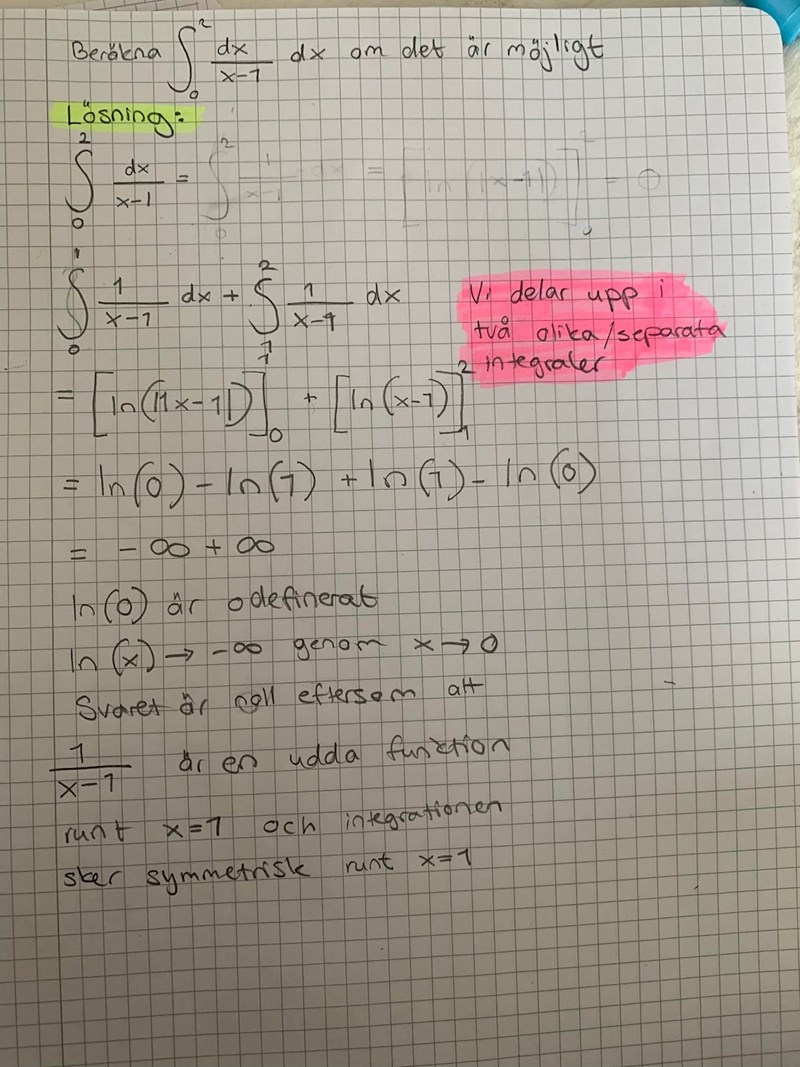 Beräkna ∫₀² dx/(x-1) dx om det är möjligt
Lösning:
∫₀² dx/(x-1) = ∫₀² 1/(x-1) dx = [ln(|x-1|)]₀² = 0
∫₀¹ 1/(x-1) dx + ∫₁² 1/(x-1) dx
Vi delar upp i
två olika/separata
integraler
= [ln(|x-1|)]₀ + [ln(x-1)]₁²
= ln(0) - ln(1) + ln(1) - ln(0)
= -∞ + ∞
ln(0) är odefinerat
ln(x) → -∞ genom x → 0
Svaret är noll eftersom att
1/(x-1) är en udda funktion
runt x=1 och integrationen
sker symmetrisk runt x=1